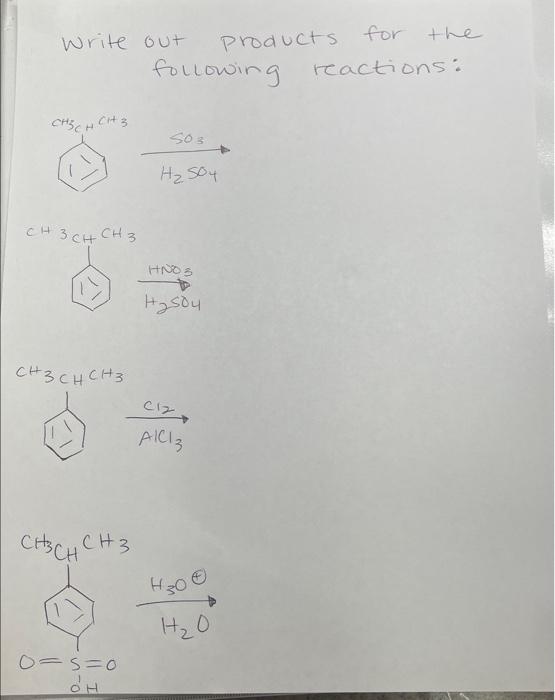 Write out products for the
following reactions:
CH3CHCH3
SO3
H2SO4
CH3CHCH3
HNO3
H2SO4
CH3CHCH3
Cl2
AlCl3
CH3CHCH3
H3O⊕
H2O
O=S=O
OH